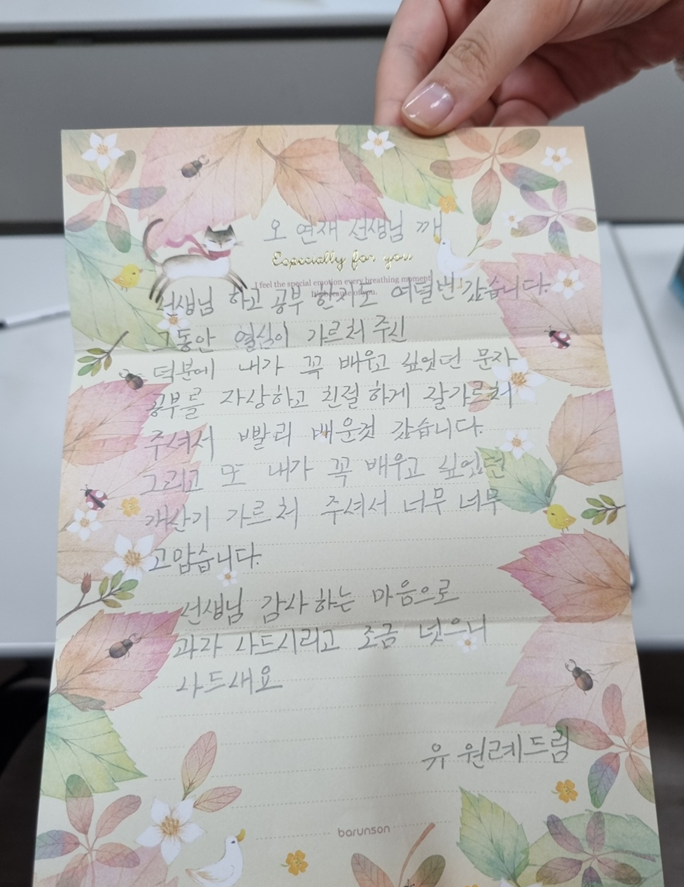 오 연재 선생님 깨
Especially for you
I feel the special emotion every breathing moment
선생님 하고 공부 한지도 여덜번 갔습니다.
그동안 열심이 가르처 주신
덕분에 내가 꼭 배우고 싶었던 문자
공부를 자상하고 친절 하게 잘가르처
주셔서 빨리 배운것 갔습니다.
그리고 또 내가 꼭 배우고 싶었던
개산기 가르처 주셔서 너무 너무
고맙습니다.
선생님 감사하는 마음으로
과자 사드시리고 조금 넛으니
사드새요
유 원례드림
barunson